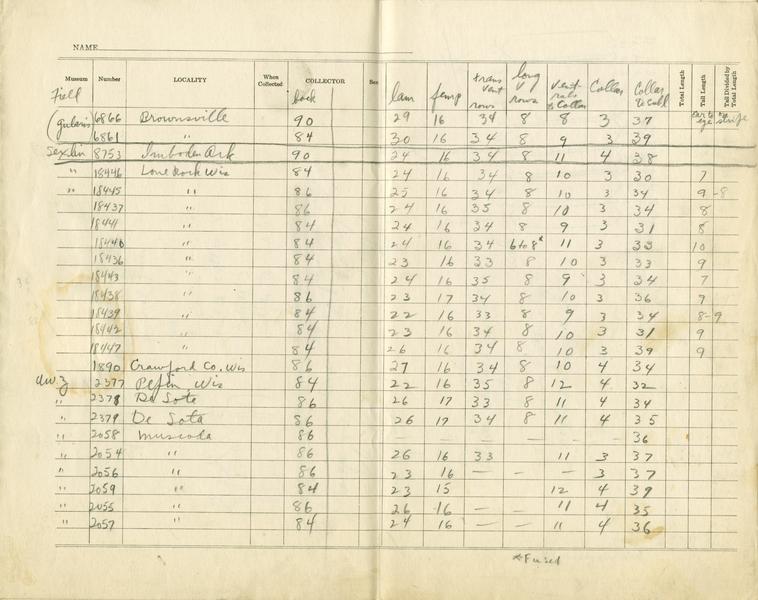 NAME
Museum Number LOCALITY When Collected COLLECTOR Sex Total Length Tail Length Tail Divided by Total Length
Field back lam femp trans vent rows long V rows Vent- rals to Collar Collar Collar
(gularis 6866 Brownsville 90 29 16 34 8 8 3 37
6861 " 84 30 16 34 8 9 3 39
Sexlin 8753 Imboden Ark 90 24 16 34 8 11 4 38
" 18446 Lone Rock Wis 84 24 16 34 8 10 3 30 7
" 18445 " 86 25 16 34 8 10 3 34 9-8
18437 " 86 24 16 35 8 10 3 34 8
18441 " 84 24 16 34 8 9 3 31 8
18440 " 84 24 16 34 6 to 8* 11 3 33 10
18436 " 84 23 16 33 8 10 3 33 9
18443 " 84 24 16 35 8 9 3 34 7
18438 " 86 23 17 34 8 10 3 36 7
18439 " 84 22 16 33 8 9 3 34 8-9
18442 " 84 23 16 34 8 10 3 31 9
18447 " 84 26 16 34 8 10 3 39 9
1890 Crawford Co. Wis 86 27 16 34 8 10 4 34
2377 Pepin Wis 84 22 16 35 8 12 4 32
" 2378 De Soto 86 26 17 33 8 11 4 34
" 2379 De Sota 86 26 17 34 8 11 4 35
" 2058 Muscoda 86 – – – – – – 36
" 2054 " 86 26 16 33 11 3 37
" 2056 " 86 23 16 – – 3 37
" 2059 " 84 23 15 12 4 39
" 2055 " 86 26 16 – – 11 4 35
" 2057 " 84 24 16 – – 11 4 36
*Fused